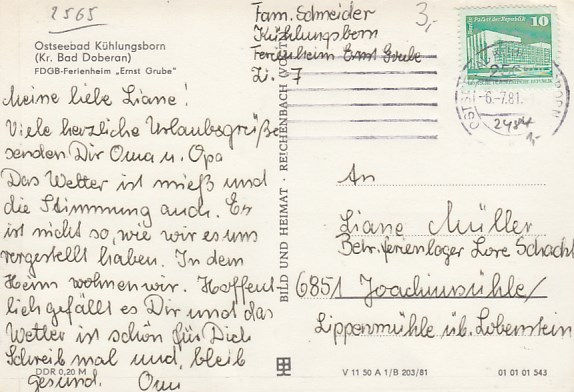 2565
Ostseebad Kühlungsborn
(Kr. Bad Doberan)
FDGB-Ferienheim „Ernst Grube"
Meine liebe Liane!
Viele herzliche Urlaubsgrüße
senden Dir Oma u. Opa
Das Wetter ist mieß und
die Stimmung auch. Es
ist nicht so, wie wir es uns
vorgestellt haben. In dem
Heim wohnen wir. Hoffent-
lich gefällt es Dir und das
Wetter ist schön für Dich
Schreib mal und, bleib
gesund. Oma
DDR 0,20 M
BILD UND HEIMAT · REICHENBACH (VOGTL)
Fam. Schneider
Kühlungsborn
Ferienheim Ernst Grube
Zi. 7
3,-
10
-6.-7.81.
2484
1,-
An
Liane Müller
Betr. ferienlager Lore Schacht
6851 Joachimsühle/
Lippenmühle üb. Lobenstein
V 11 50 A 1/B 203/81
01 01 01 543